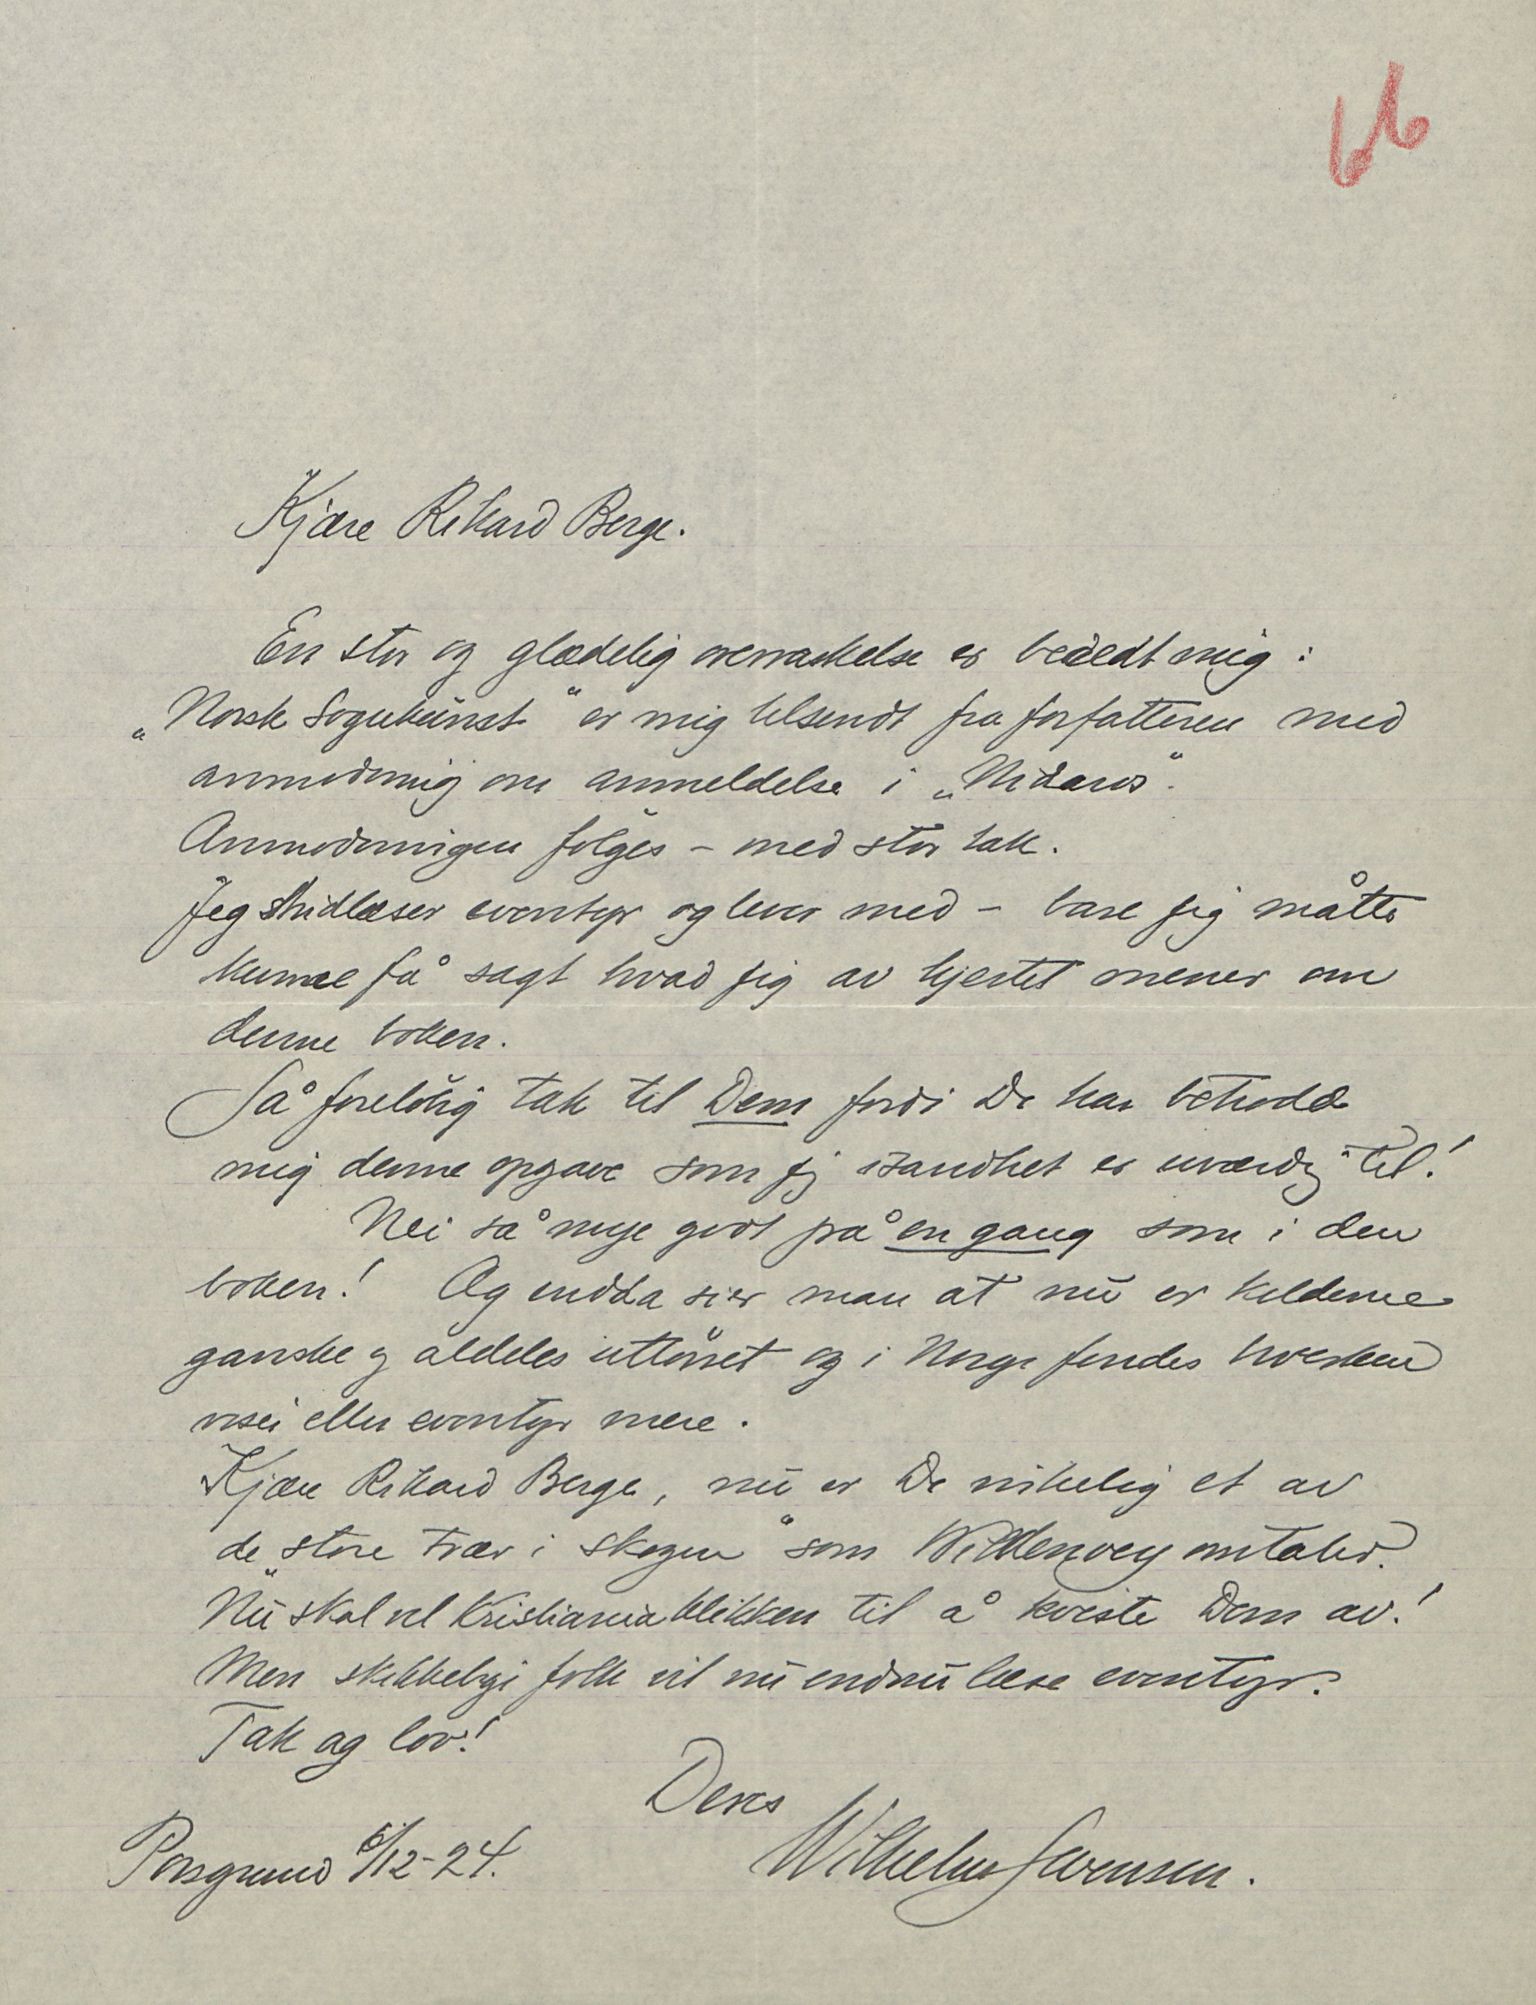 66
Kjære Rikard Berge.
En stor og glædelig overraskelse er beredt mig:
„Norsk Sogukunst" er mig tilsendt fra forfatteren med
anmodning om anmeldelse i „Nidaros".
Anmodningen følges - med stor tak.
Jeg stridlæser eventyr og lever med - bare jeg måtte
kunne få sagt hvad jeg av hjertet mener om
denne boken.
Så foreløbig tak til Dem fordi De har betrodd
mig denne opgave som jeg isandhet er uværdig til!
Nei så mye godt på en gang som i den
boken! Og endda sier man at nu er kilderne
ganske og aldeles uttørret og i Norge findes hverken
viser eller eventyr mere.
Kjære Rikard Berge, nu er De virkelig et av
de „store trær i skogen" som Wildenvey omtaler.
Nu skal vel Kristianiaklikken til å kviste Dem av!
Men skikkelige folk vil nu endnu læse eventyr.
Tak og lov!
Deres
Wilhelm Swensen.
Porsgrund 6/12-24.